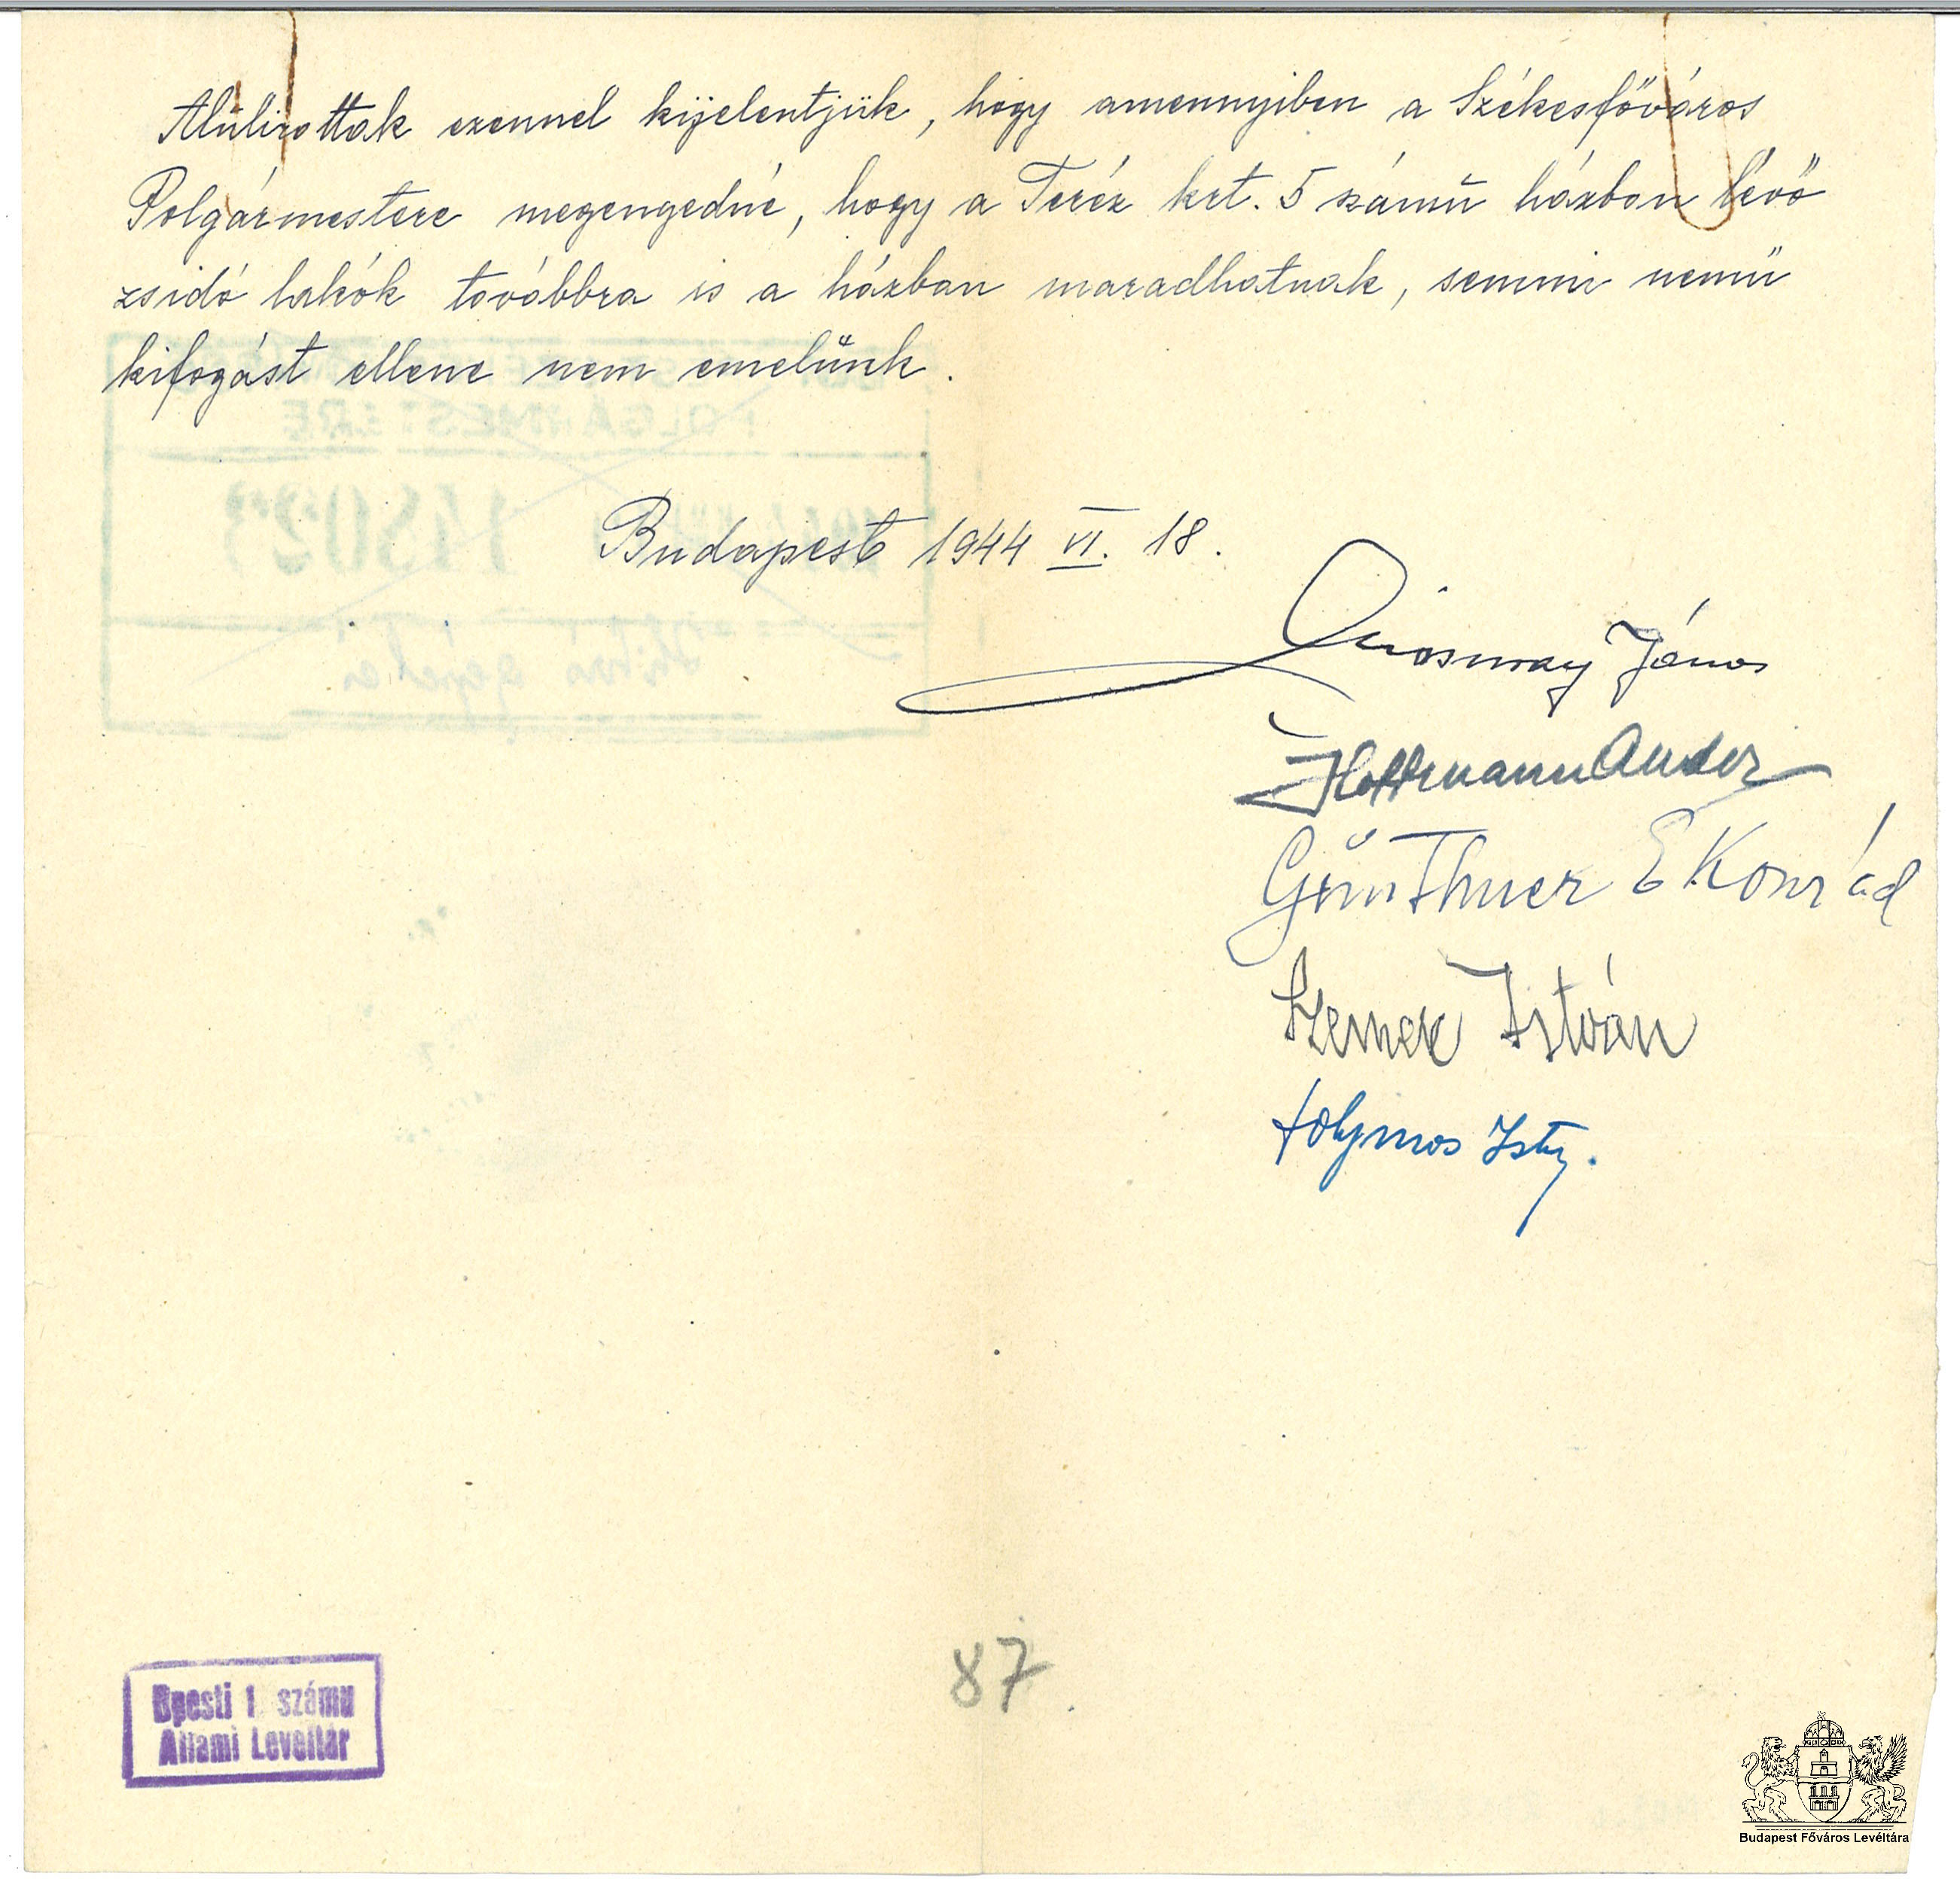 Alulírottak ezennel kijelentjük, hogy amennyiben a Székesfőváros
Polgármestere megengedné, hogy a Teréz krt. 5 számú házban lévő
zsidó lakók továbbra is a házban maradhatnak, semmi nemű
kifogást ellene nem emelünk.
Budapest 1944 VI. 18.
János
Hoffmann Andor
Günthner E Konrád
István
Solymos
87.
Bpesti 1 számu
Állami Levéltár
Budapest Főváros Levéltára